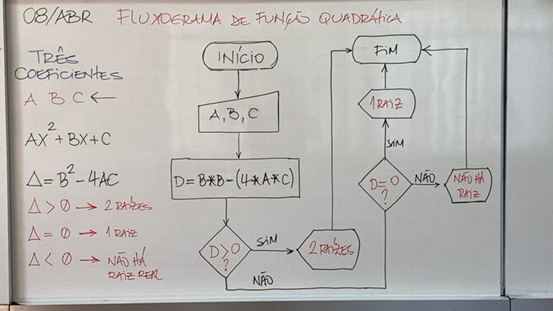 08/ABR FLUXOGRAMA DE FUNÇÃO QUADRÁTICA
TRÊS
COEFICIENTES
A B C ←
AX²+BX+C
Δ=B²-4AC
Δ > 0 → 2 RAÍZES
Δ = 0 → 1 RAIZ
Δ < 0 → NÃO HÁ
RAIZ REAL
INÍCIO
A, B, C
D=B*B-(4*A*C)
D>0
?
SIM
NÃO
2 RAÍZES
D=0
?
SIM
NÃO
1 RAIZ
NÃO HÁ
RAIZ
FIM